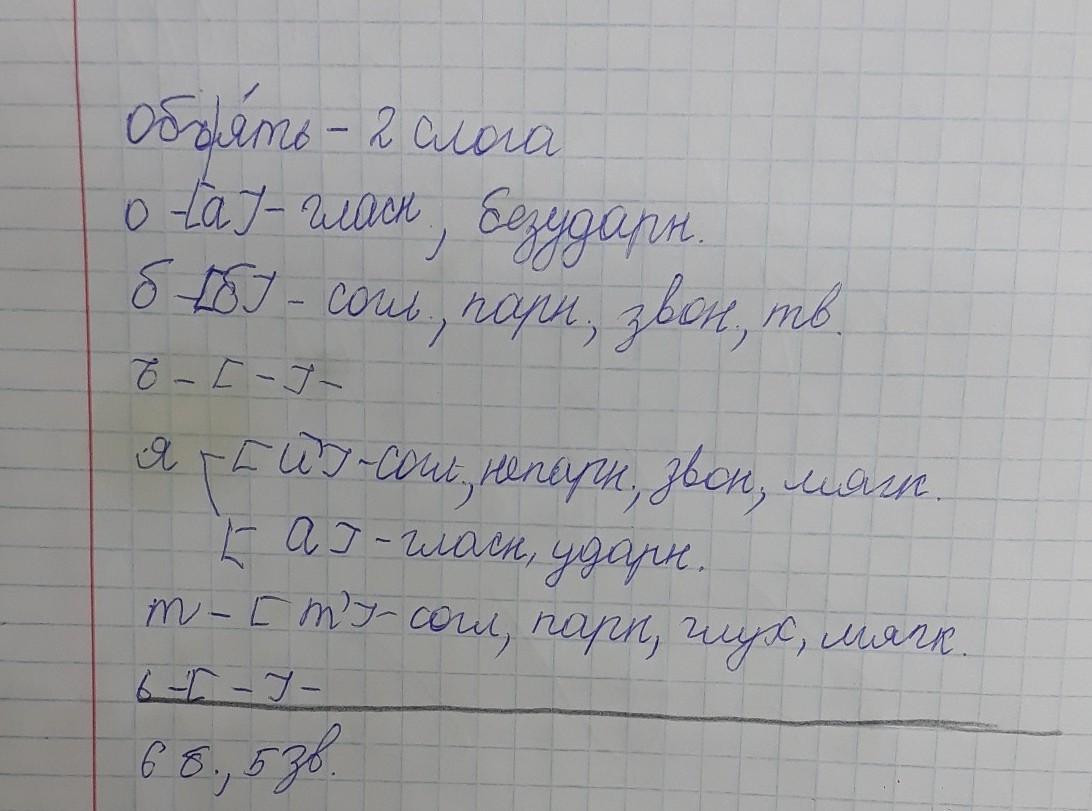 Объ|я́ть - 2 слога
о -[а]- гласн., безударн.
б -[б] - согл., парн., звон., тв.
ъ - [ - ] -
я - [й'] - согл., непарн., звон., мягк.
[ а ] - гласн, ударн.
т - [ т' ] - согл, парн, глух, мягк.
ь - [ - ] -
6 б., 5 зв.